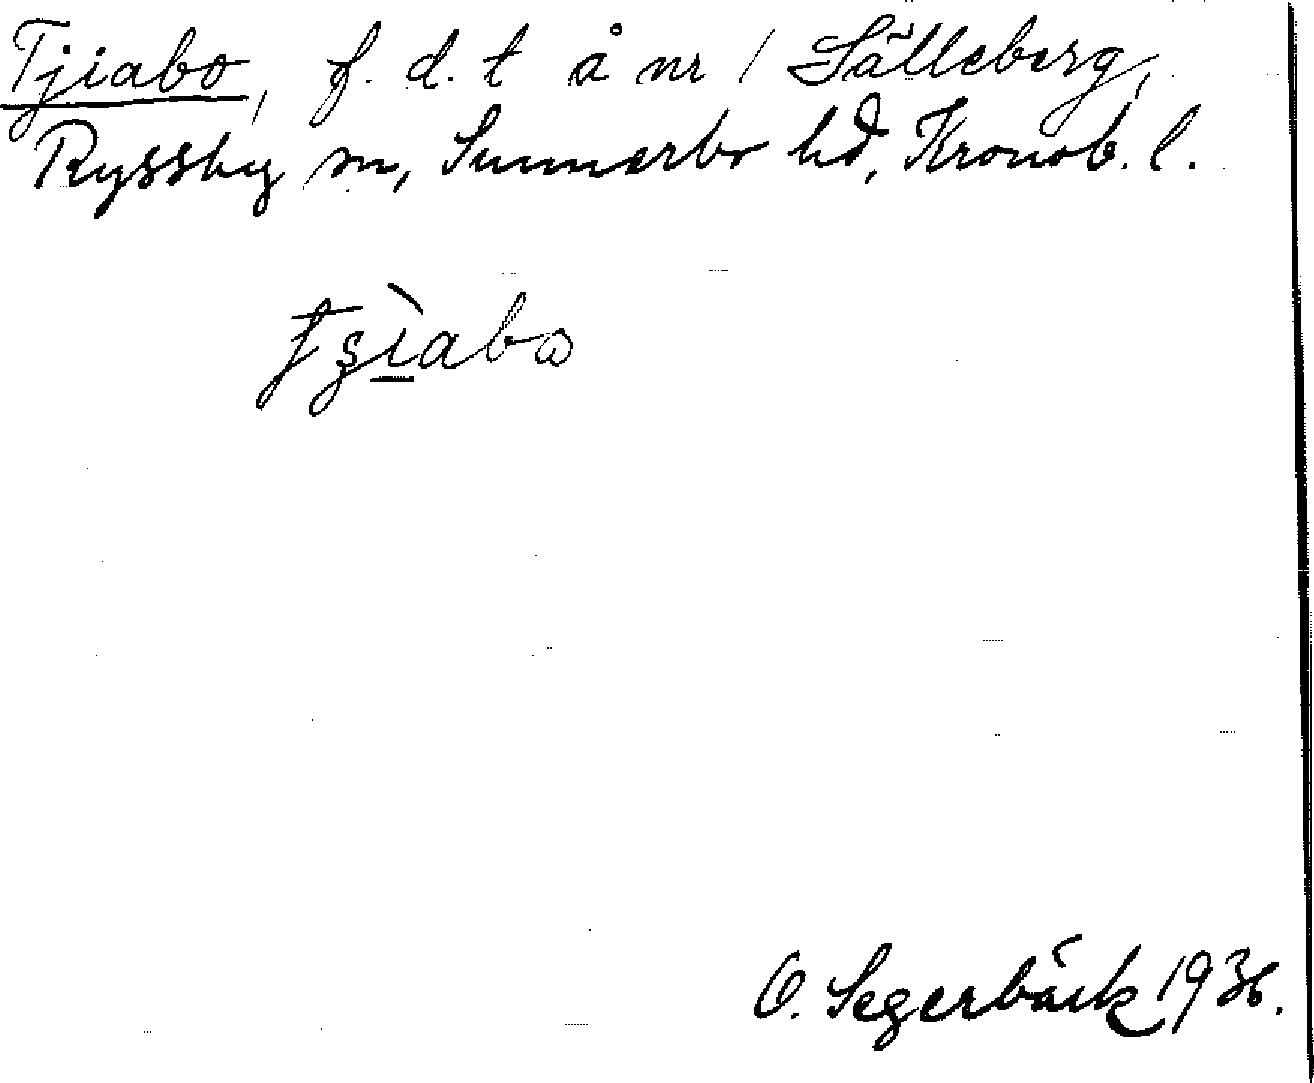 Tjiabo, f. d. t å nr 1 Sälleberg,
Ryssby sn, Sunnerbo hd, Kronob. l.
O. Segerbäck 1936.